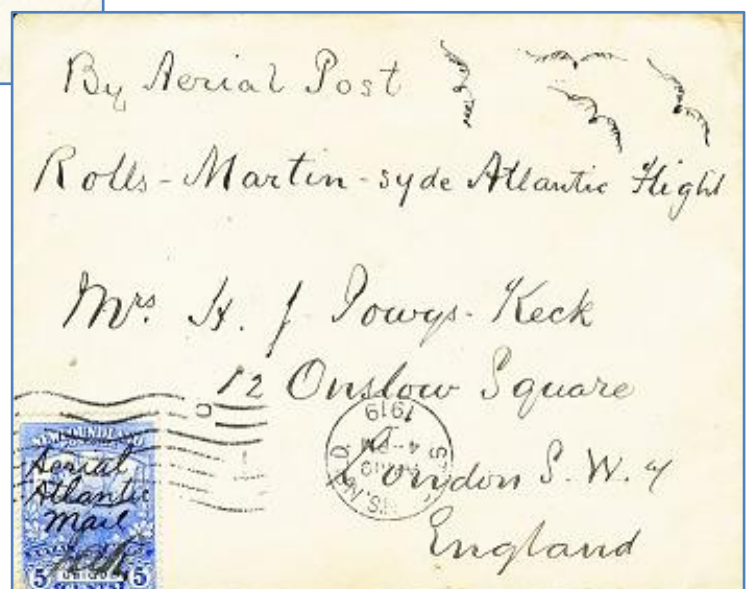 By Aerial Post
Rolls-Martin-syde Atlantic Flight
Mrs. H. J. Powys-Keck
12 Onslow Square
London S.W.7
England
1919
4-PM
NEWFOUNDLAND
Aerial
Atlantic
Mail
5 5
CENTS